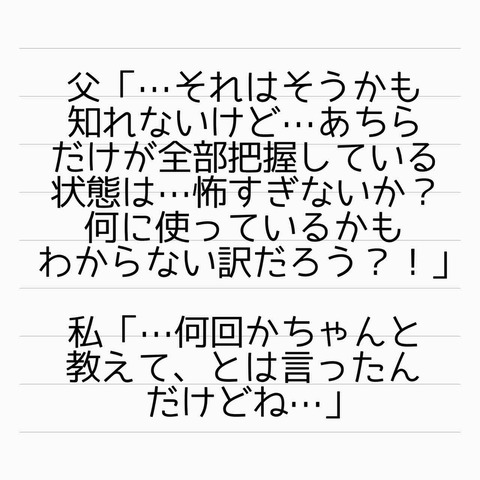 父「…それはそうかも
知れないけど…あちら
だけが全部把握している
状態は…怖すぎないか？
何に使っているかも
わからない訳だろう？！」
私「…何回かちゃんと
教えて、とは言ったん
だけどね…」